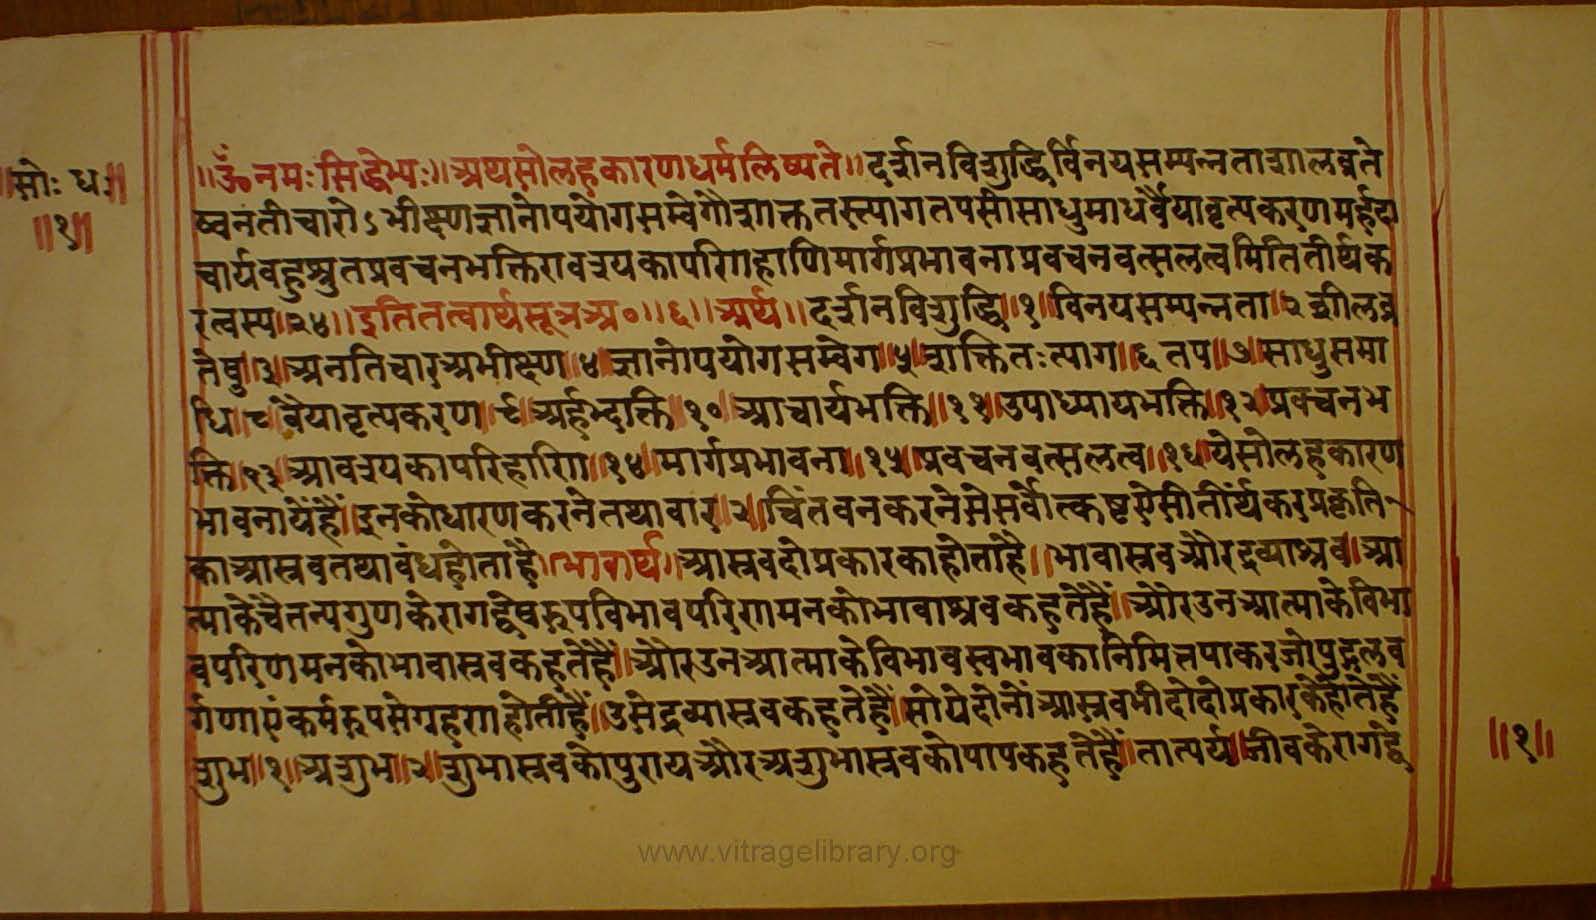 ॥सोः ध॰॥
॥१॥
॥ॐनमःसिद्धेभ्यः॥अथसोलहकारणधर्मलिष्यते॥दर्शनविशुद्धिर्विनयसम्पन्नताशीलव्रते
ष्वनतीचारोऽभीक्ष्णज्ञानोपयोगसम्वेगौशक्तितस्त्यागतपसीसाधुसमाधर्वैयावृत्यकरणमर्हदा
चार्यवहुश्रुतप्रवचनभक्तिरावश्यकापरिणहाणिमार्गप्रभावनाप्रवचनवत्सलत्वमितितीर्थक
रत्वस्य॥२४॥इतितत्वार्थसूत्रअ०॥६॥अर्थ॥दर्शनविशुद्धि॥१॥विनयसम्पन्नता॥२शीलव्र
तेषु॥३॥अनतिचारअभीक्ष्ण॥४॥ज्ञानोपयोगसम्वेग॥५॥शक्तितःत्याग॥६तप॥७॥साधुसमा
धि॥८वैयावृत्यकरण॥९॥अर्हभ्दक्ति॥१०॥आचार्यभक्ति॥११॥उपाध्यायभक्ति॥१२॥प्रवचनभ
क्ति॥१३॥आवश्यकापरिहाणि॥१४॥मार्गप्रभावना॥१५॥प्रवचनवत्सलत्व॥१६॥येसोलहकारण
भावनायेंहैं॥इनकोधारणकरनेतथावार॥२॥चिंतवनकरनेसेसर्वोत्कष्टऐसीतीर्थकरप्रकृति
काआस्रवतथावंधहोताहै॥भावार्थ॥आस्रवदोप्रकारकाहोताहै॥भावास्रवऔरद्रव्याश्रव॥आ
त्माकेचैतन्यगुणकेरागद्वेषरुपविभावपरिणमनकोभावाश्रवकहतेहैं॥औरउनआत्माकेविभा
वपरिणमनकोभावास्रवकहतेहैं॥औरउनआत्माकेविभावस्वभावकानिमित्तपाकरजोपुद्गलव
र्गणाएंकर्मरुपसेग्रहणहोतीहैं॥उसेद्रव्यास्रवकहतेहैं॥सोयेदोनोंआस्रवभीदोदोप्रकारकेहोतेहैं
शुभ॥१॥अशुभ॥२॥शुभास्रवकोपुण्यऔरअशुभास्रवकोपापकहतेहैं॥तात्पर्य॥जीवकेरागद्वे
॥१॥
www.vitragelibrary.org